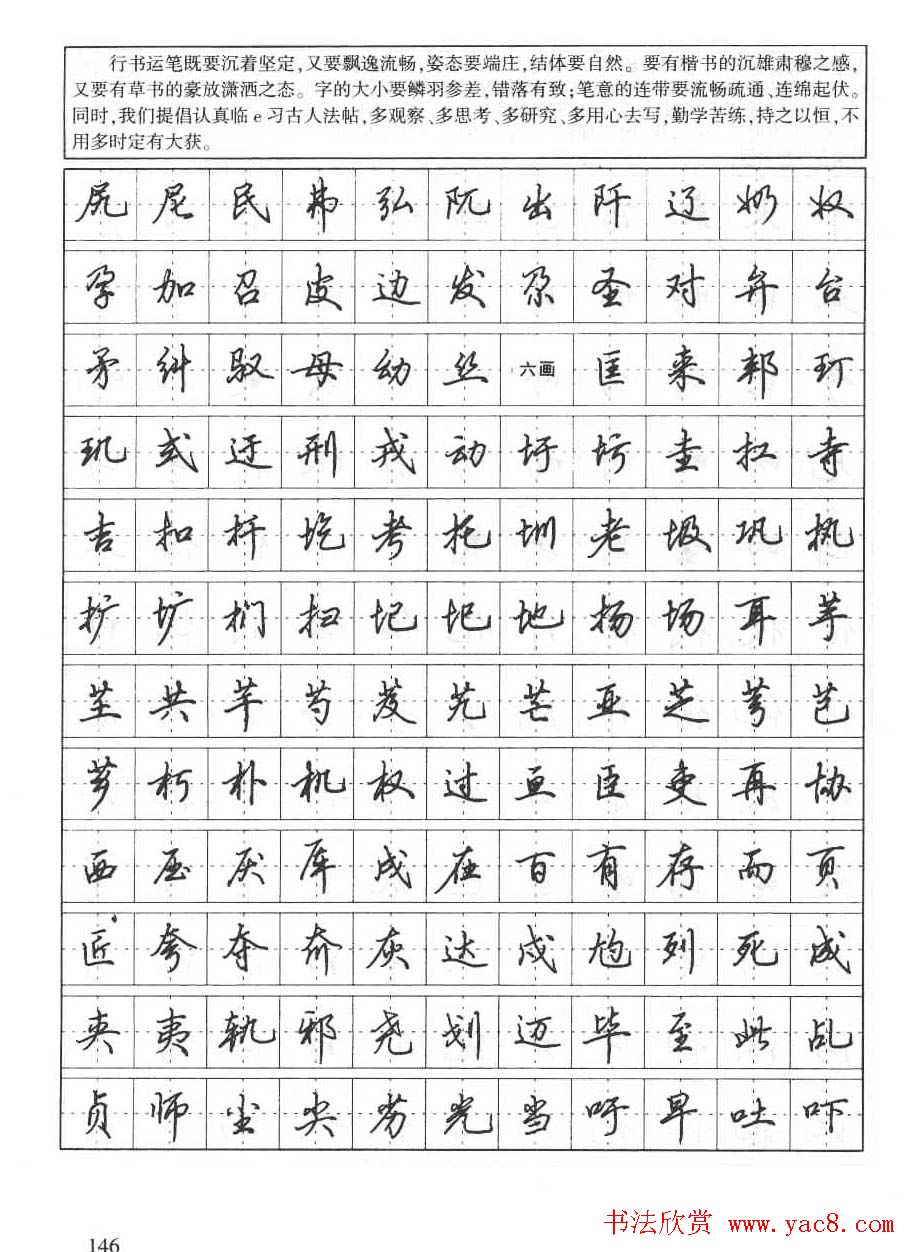 行书运笔既要沉着坚定,又要飘逸流畅,姿态要端庄,结体要自然。要有楷书的沉雄肃穆之感,
又要有草书的豪放潇洒之态。字的大小要鳞羽参差,错落有致;笔意的连带要流畅疏通、连绵起伏。
同时,我们提倡认真临e习古人法帖,多观察、多思考、多研究、多用心去写,勤学苦练,持之以恒,不
用多时定有大获。
尻 尼 民 弗 弘 阢 出 阡 辽 奶 奴
孕 加 召 皮 边 发 尕 圣 对 弁 台
矛 纠 驭 母 幼 丝 六画 匡 来 邦 玎
玑 式 迂 刑 戎 动 圩 圬 圭 扛 寺
吉 扣 扦 圪 考 托 圳 老 圾 巩 执
扩 圹 扪 扫 圮 圯 地 扬 场 耳 芋
共 芊 芍 芨 芄 芒 亚 芝 芎 芑
芗 朽 朴 机 权 过 亘 臣 吏 再 协
西 压 厌 库 戌 在 百 有 存 而 页
匠 夸 夺 夼 灰 达 戍 尥 列 死 成
夹 夷 轨 邪 尧 划 迈 毕 至 此 乩
贞 师 尘 尖 劣 光 当 吁 早 吐 吓
146
书法欣赏 www.yac8.com